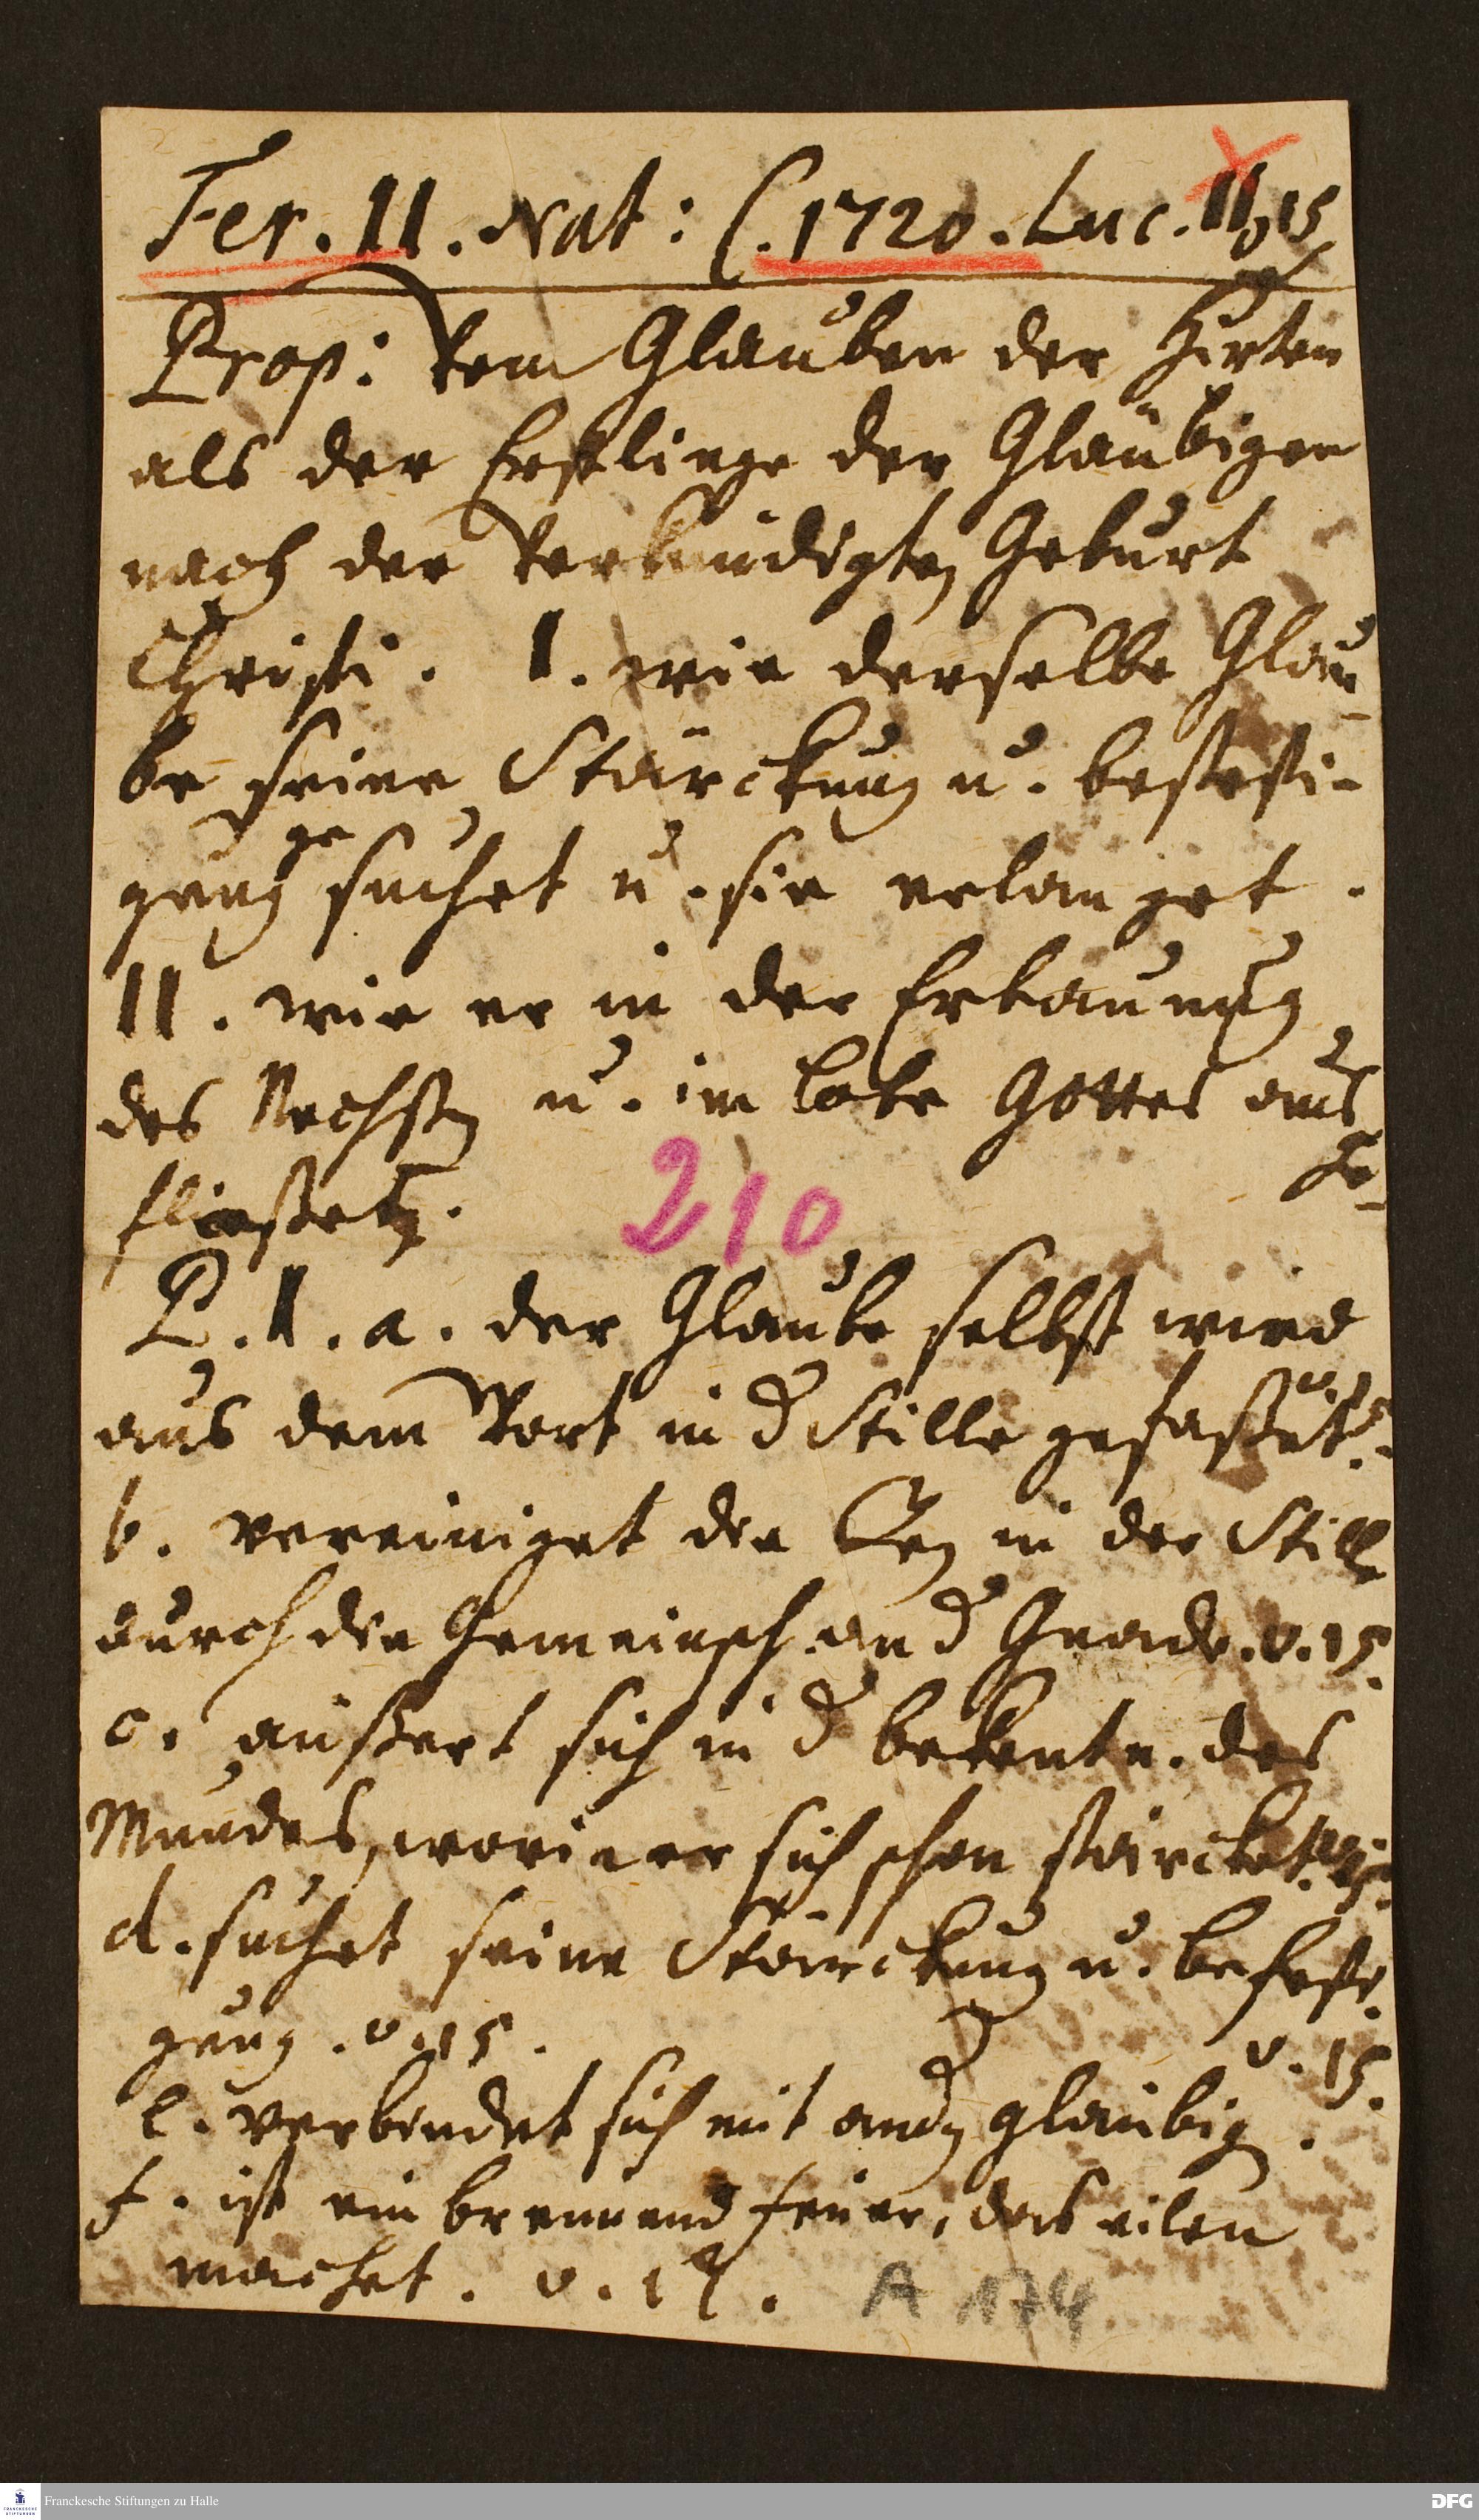 Fer. II. Nat: C. 1720. Luc. II, 15
Prop: Vom Glauben der Hirten
als der Erstlinge der Gläubigen
nach der Verkündigten Geburt
Christi. I. wie derselbe Glau-
be seine Stärckung u. befesti-
gung gesuchet u. sie erlanget.
II. wie er in der Erbauung
des Nechsten u. im Lobe Gottes aus
fließet.
210
P. I. a. der Glaube selbst wird
aus dem Wort in d Stille gefaßet
b. vereiniget die in der Still
durch die Gemeinsch. an d Gnade. v. 15.
c. äußert sich in d bekentn. des
Mundes, worin er sich schon stärcket. v. 15.
d. suchet seine Stärckung u. befesti
gung. v. 15.
v. 15.
e. verbindet sich mit andern gläubig.
f. ist ein brennend feuer, das eilen
machet. v.
A 174
Franckesche Stiftungen zu Halle
DFG